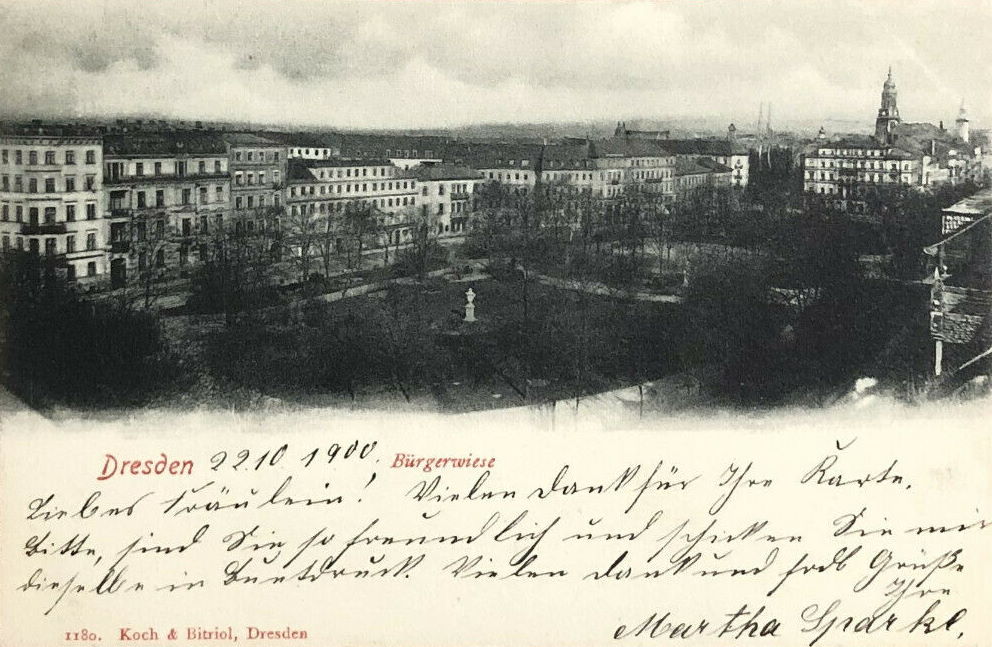 Dresden 22.10. 1900. Bürgerwiese
Liebes Fräulein! Vielen Dank für Ihre Karte.
Bitte, sind Sie so freundlich und schicken Sie mir
dieselbe in Buntdruck. Vielen Dank und Grüße
Ihre
Martha Sparkl.
1180. Koch & Bitriol, Dresden